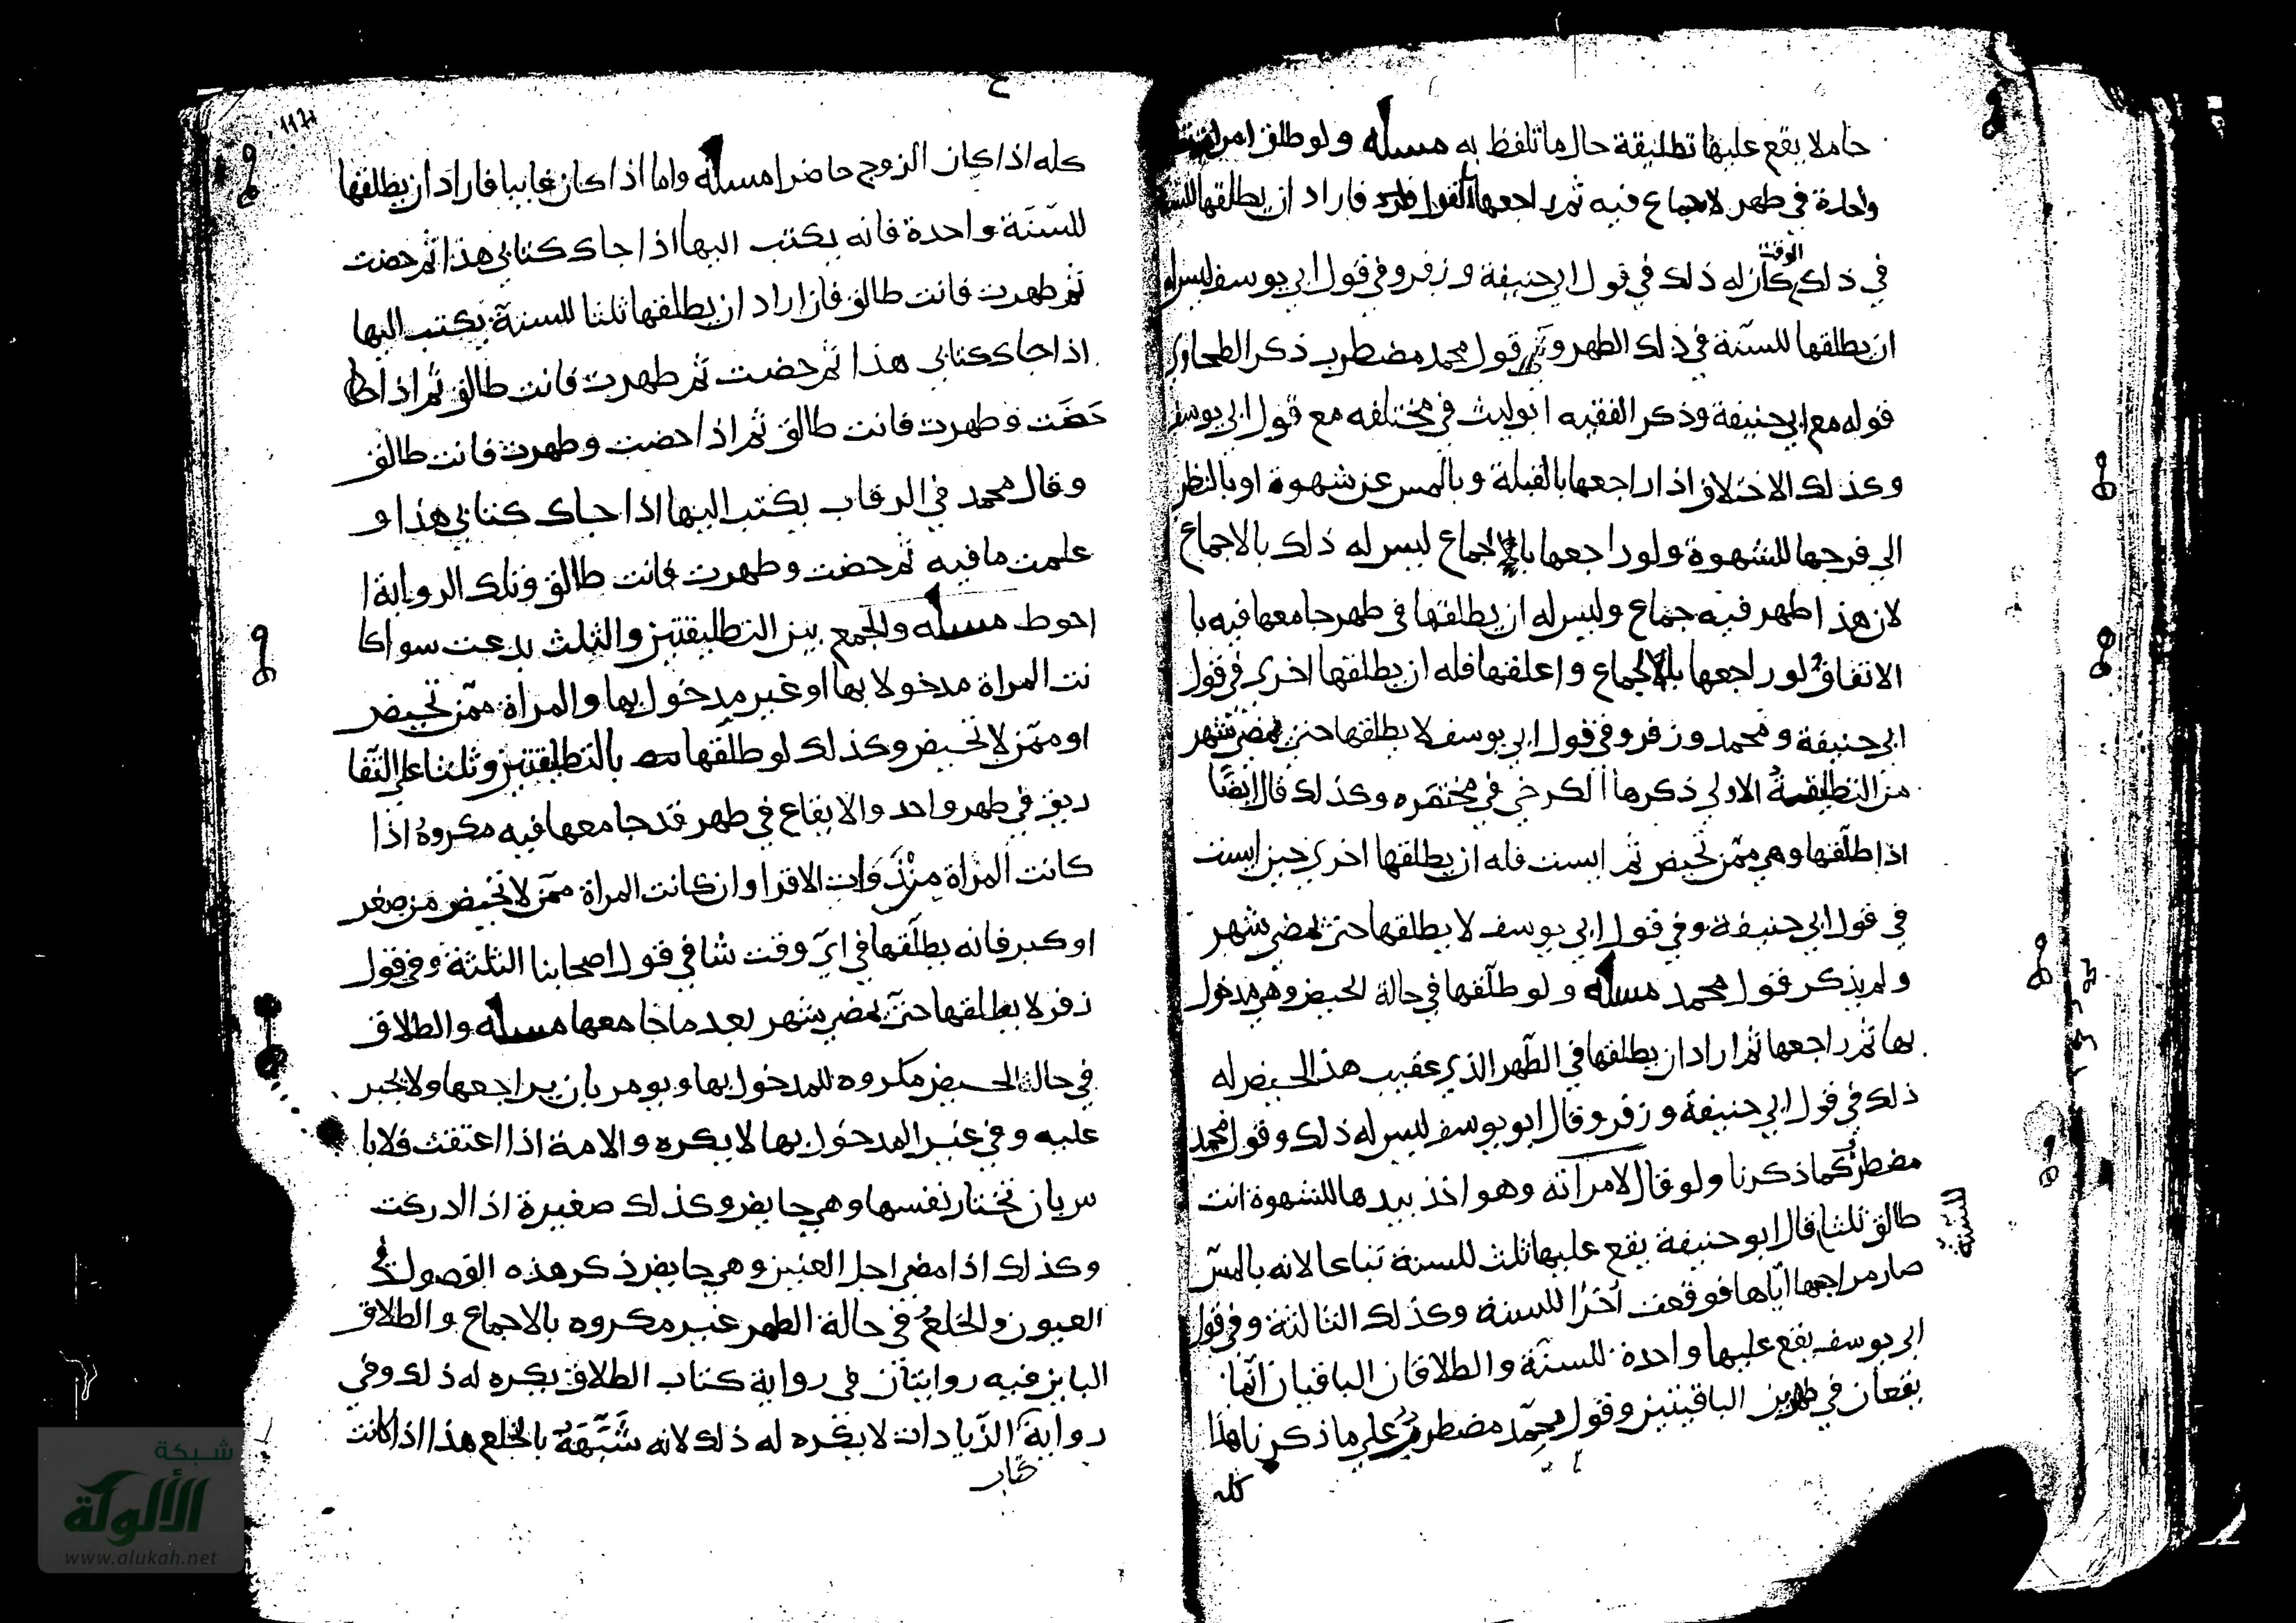 حاملا يقع عليها تطليقة حال ما تلفظ به مسله ولو طلق امراته
واحدة في طهر لاجماع فيه ثم راجعها بالقول فاراد ان يطلقها للسنة
في ذلك الوقت كان له ذلك في قول ابي حنيفة وزفر وفي قول ابي يوسف ليس له
ان يطلقها للسنة في ذلك الطهر وقول محمد مضطرب ذكر الطحاوي
قوله مع ابي حنيفة وذكر الفقيه ابوليث في مختلفه مع قول ابي يوسف
وكذلك الاختلاف اذا راجعها بالقبلة وبالمس عن شهوة او بالنظر
الي فرجها للشهوة ولو راجعها بالجماع ليس له ذلك بالاجماع
لان هذا طهر فيه جماع وليس له ان يطلقها في طهر جامعها فيه با
الاتفاق لو راجعها بالجماع واعلقها فله ان يطلقها اخري في قول
ابي حنيفة ومحمد وزفر وفي قول ابي يوسف لا يطلقها حتي يمضي شهر
من التطليقة الاولي ذكرها الكرخي في مختصره وكذلك قال ايضا
اذا طلقها وهي ممن تحيض ثم ايست فله ان يطلقها اخري حين ايست
في قول ابي حنيفة وفي قول ابي يوسف لا يطلقها حتي يمضي شهر
ولم يذكر قول محمد مسله ولو طلقها في حالة الحيض وهي مدخول
بها ثم راجعها ثم اراد ان يطلقها في الطهر الذي عقيب هذا الحيض له
ذلك في قول ابي حنيفة وزفر وقال ابو يوسف ليس له ذلك وقول محمد
مضطرب كما ذكرنا ولو قال لامراته وهو اخذ بيدها للشهوة انت
طالق ثلثا قال ابو حنيفة يقع عليها ثلث للسنة تباعا لانه بالمس
للسنة
صار مراجعها اياها فوقعت اخرا للسنة وكذلك الثالثة وفي قول
ابي يوسف يقع عليها واحدة للسنة والطلاقان الباقيان انما
يقعان في طهرين الباقيتين وقول محمد مضطرب علي ما ذكرنا هذا
كله
كله اذا كان الزوج حاضرا مسله واما اذا كان غايبا فاراد ان يطلقها
للسنة واحدة فانه يكتب اليها اذا جاك كتابي هذا ثم حضت
ثم طهرت فانت طالق فان اراد ان يطلقها ثلثا للسنة يكتب اليها
اذا جاك كتابي هذا ثم حضت ثم طهرت فانت طالق ثم اذا
حضت وطهرت فانت طالق ثم اذا حضت وطهرت فانت طالق
وقال محمد في الرقاب يكتب اليها اذا جاك كتابي هذا و
علمت ما فيه ثم حضت وطهرت فانت طالق وتلك الرواية ا
احوط مسله والجمع بين التطليقتين والثلث بدعت سوا كا
نت المراة مدخولا بها او غير مدخول بها والمراة ممن تحيض
او ممن لا تحيض وكذلك لو طلقها بالتطليقتين وثلثا علي التفا
ريق في طهر واحد والايقاع في طهر قد جامعها فيه مكروه اذا
كانت المراة من ذوات الاقرا وان كانت المراة ممن لا تحيض من صغر
او كبر فانه يطلقها في اي وقت شا في قول اصحابنا الثلثة وفي قول
زفر لا يطلقها حتي يمضي شهر بعد ما جامعها مسله والطلاق
في حالة الحيض مكروه للمدخول بها ويومر بان يراجعها ولا يجبر
عليه وفي غير المدخول بها لا يكره والامة اذا اعتقت فلا با
س بان تختار نفسها وهي حايض وكذلك صغيرة اذا ادركت
وكذلك اذا مضي اجل العنين وهي حايض ذكر هذه الفصول في
العيون والخلع في حالة الطهر غير مكروه بالاجماع والطلاق
الباين فيه روايتان في رواية كتاب الطلاق يكره له ذلك وفي
رواية الزيادات لا يكره له ذلك لانه شبهه بالخلع هذا اذا كانت
شبكة
الألوكة
www.alukah.net